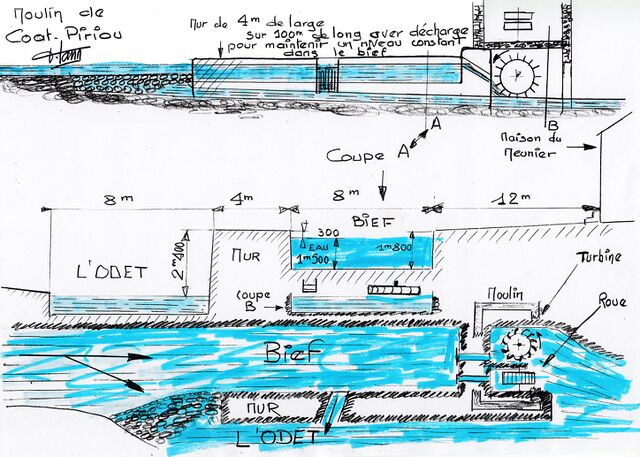 Moulin de
Coat-Piriou
Mur de 4m de large
sur 100m de long avec décharge
pour maintenir un niveau constant
dans le bief
A
A
Coupe
B
Maison du
Meunier
8m
4m
8m
12m
BIEF
300
EAU
1m500
1m800
2m400
MUR
L'ODET
Coupe
B
Moulin
Turbine
Roue
Bief
MUR
L'ODET